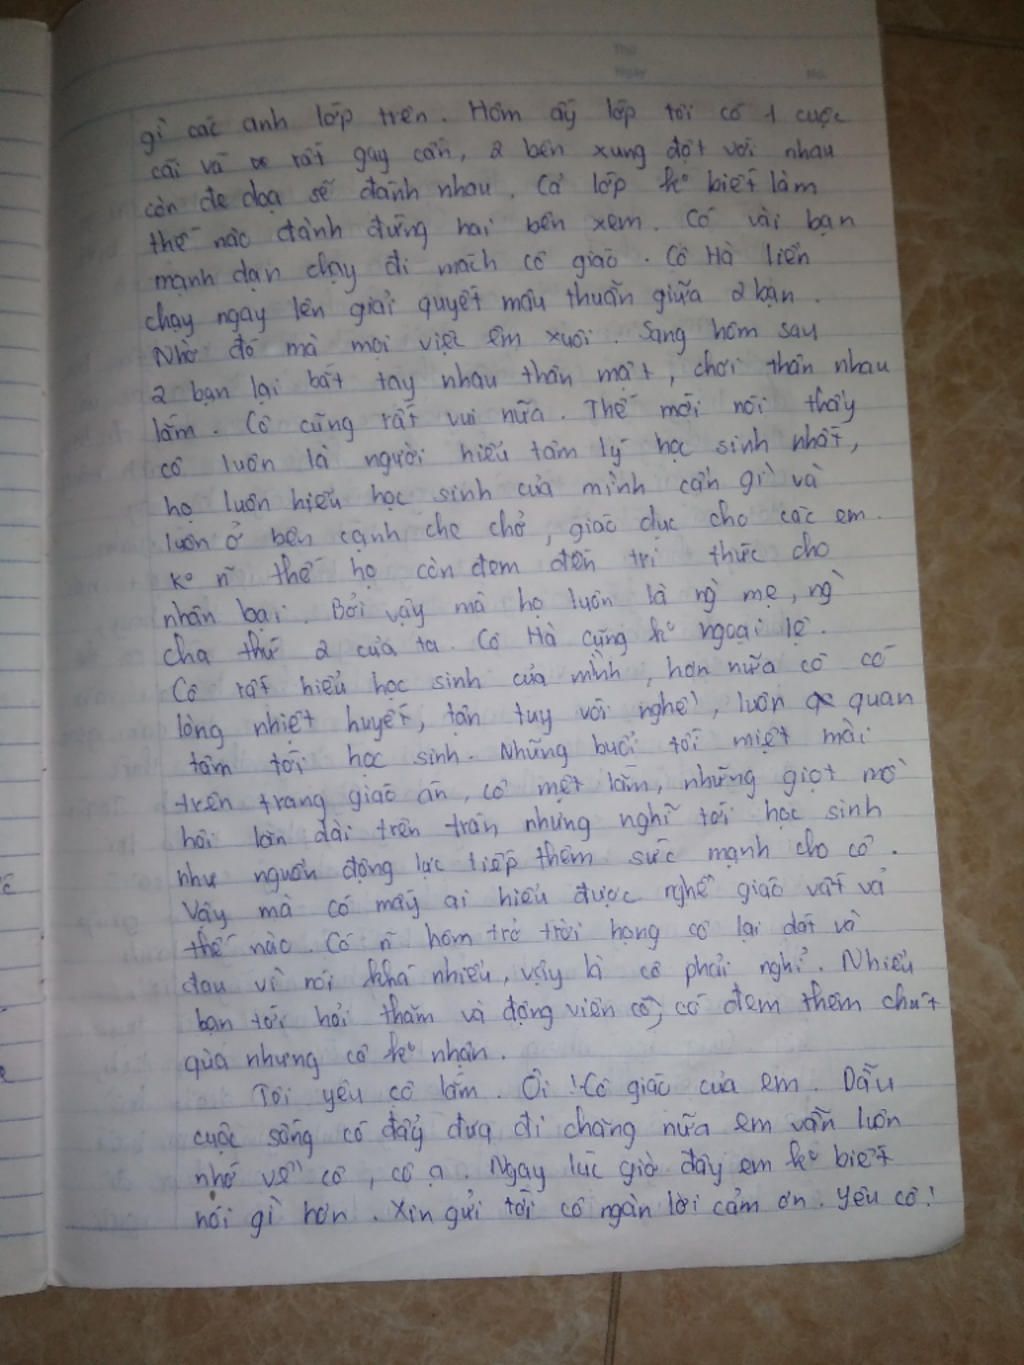 Thứ
Ngày No.
gì các anh lớp trên. Hôm ấy lớp tôi có 1 cuộc
cãi vã rất gay cấn, 2 bên xung đột với nhau
còn đe doạ sẽ đánh nhau. Cả lớp ko biết làm
thế nào đành đứng hai bên xem. Có vài bạn
mạnh dạn chạy đi mách cô giáo. Cô Hà liền
chạy ngay lên giải quyết mâu thuẫn giữa 2 bạn.
Nhờ đó mà mọi việc êm xuôi. Sang hôm sau
2 bạn lại bắt tay nhau thân mật, chơi thân nhau
lắm. Cô cũng rất vui nữa. Thế mới nói thầy
cô luôn là người hiểu tâm lý học sinh nhất,
họ luôn hiểu học sinh của mình cần gì và
luôn ở bên cạnh che chở, giáo dục cho các em.
Ko n~ thế họ còn đem đến tri thức cho
nhân loại. Bởi vậy mà họ luôn là ng` mẹ, ng`
cha thứ 2 của ta. Cô Hà cũng ko ngoại lệ.
Cô rất hiểu học sinh của mình, hơn nữa cô có
lòng nhiệt huyết, tận tuy với nghề, luôn quan
tâm tới học sinh. Những buổi tối miệt mài
trên trang giáo án, cô mệt lắm, những giọt mồ
hôi lăn dài trên trán nhưng nghĩ tới học sinh
như nguồn động lực tiếp thêm sức mạnh cho cô.
Vậy mà có mấy ai hiểu được nghề giáo vất vả
thế nào. Có n~ hôm trở trời họng cô lại đát và
đau vì nói khá nhiều, vậy là cô phải nghỉ. Nhiều
bạn tới hỏi thăm và động viên cô, có đem thêm chút
quà nhưng cô ko nhận.
Tôi yêu cô lắm. Ôi! Cô giáo của em. Dẫu
cuộc sống có đẩy đưa đi chăng nữa em vẫn luôn
nhớ về cô, cô ạ. Ngay lúc giờ đây em ko biết
nói gì hơn. Xin gửi tới cô ngàn lời cảm ơn. Yêu cô!